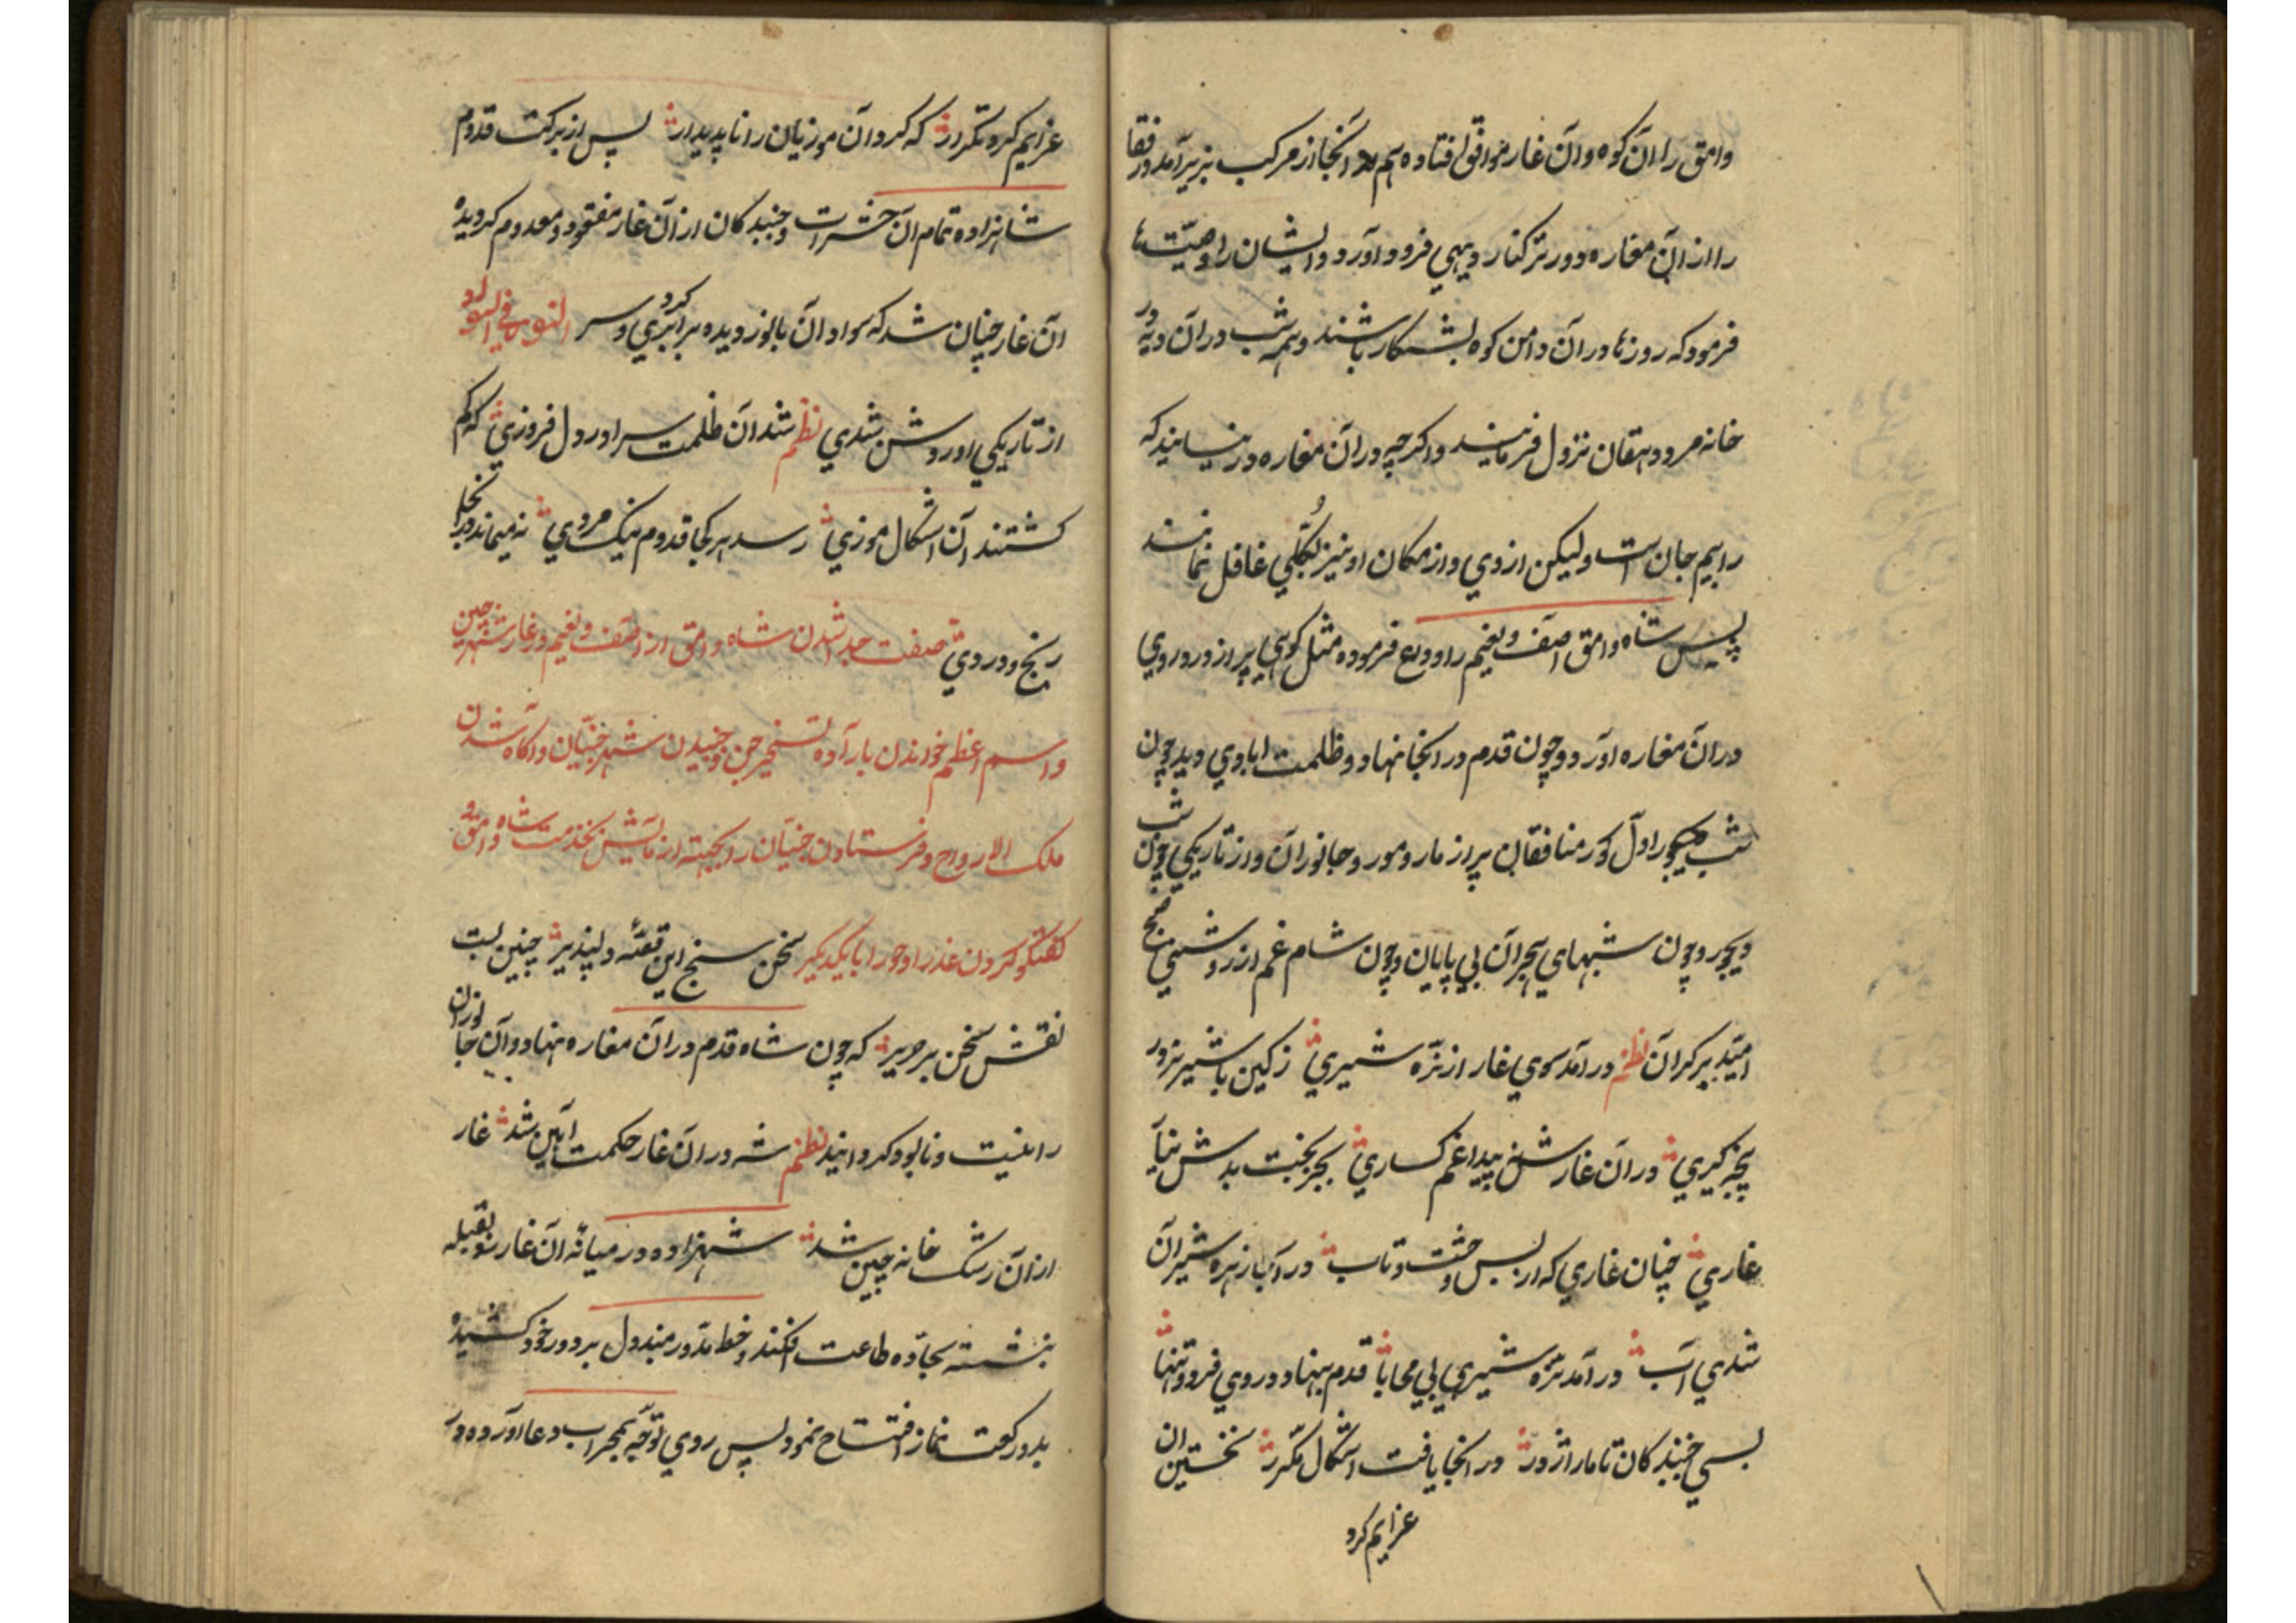 وامق را آن کوه و آن غار موافق افتاده هم آنجا از مرکب بزیر آمد و رفقا
را از آن مغاره دورتر کنار دیهی فرود آورد و ایشان را وصیت‌ها
فرمود که روزها در آن دامن کوه بشکار باشند و همه شب در آن دیه در
خانه مرد دهقان نزول فرمایند و اگرچه در آن مغاره در نیایند که
را بیم جان است ولیکن از وی و از مکان او نیز بکُلّی غافل نمانند
پس شاه وامق اصف و یغیم را وداع فرموده مثل کوهی پر از درد روی
در آن مغاره آورد و چون قدم در انجا نهاد و ظلمت اباوی دید چون
شب دیجور اول کور منافقان پر از مار و مور و جانوران و از تاریکی چون شب
دیجور و چون شبهای هجران بی پایان و چون شام غم از روشنی صبح
امید بر کران نظم در آمد سوی غار از نره شیری ز کین با شیر نر در
پنجه کیری در آن غارش نه پیدا غم کساری بجز بخت بدش نیا
غاری چنان غاری که از بس و تاب در آب زهره شیران
شدی آب در آمد نره شیری بی محابا قدم بنهاد در وی فرد و تنها
بسی جنبندکان تا مار اژدر در انجا یافت اشکال مکرر نخستین ان
عزایم کرد
عزایم کرد تکرار که کرد آن موزیان را ناپدیدار پس از برکت قدوم
شاهزاده تمام آن حشرات و جنبدکان از آن غار مفقود و معدوم کردیده
آن غار چنان شد که سواد آن با نور دیده برابری کردی و سر النور فی السواد
از تاریکی او روشن شدی نظم شد آن ظلمت سرا در دل فروزی که کم
کشتند آن اشکال موزی رسد هر کجا قدوم نیک مردی نه میماند در انجا
رنج و دردی صفت جدا شدن شاه وامق از اصف و یغیم در غار شهر چین
و اسم اعظم خواندن باراده تسخیر جن و جنبیدن شهر جنیان و آکاه شدن
ملک الارواح و فرستادن جنیان را بجهته ازمایش بخدمت شاه وامق و
کفتکو کردن عذرا و حورا با یکدیکر سخن سنج این قصهٔ دلپذیر چنین بست
نقش سخن بر حریر که چون شاه قدم در آن مغاره نهاد و آن جانوران
را نیست و نابود کردانید نظم شه در آن غار حکمت آیین شد غار
از آن رشک خانه چین شد شهزاده در میانهٔ آن غار رو بقبله
بنشسته سجاده طاعت افکند و خط مدور مندل بر دور خود کشیده
بدو رکعت نماز افتتاح نمود پس روی توجه بمحراب دعا آورده و